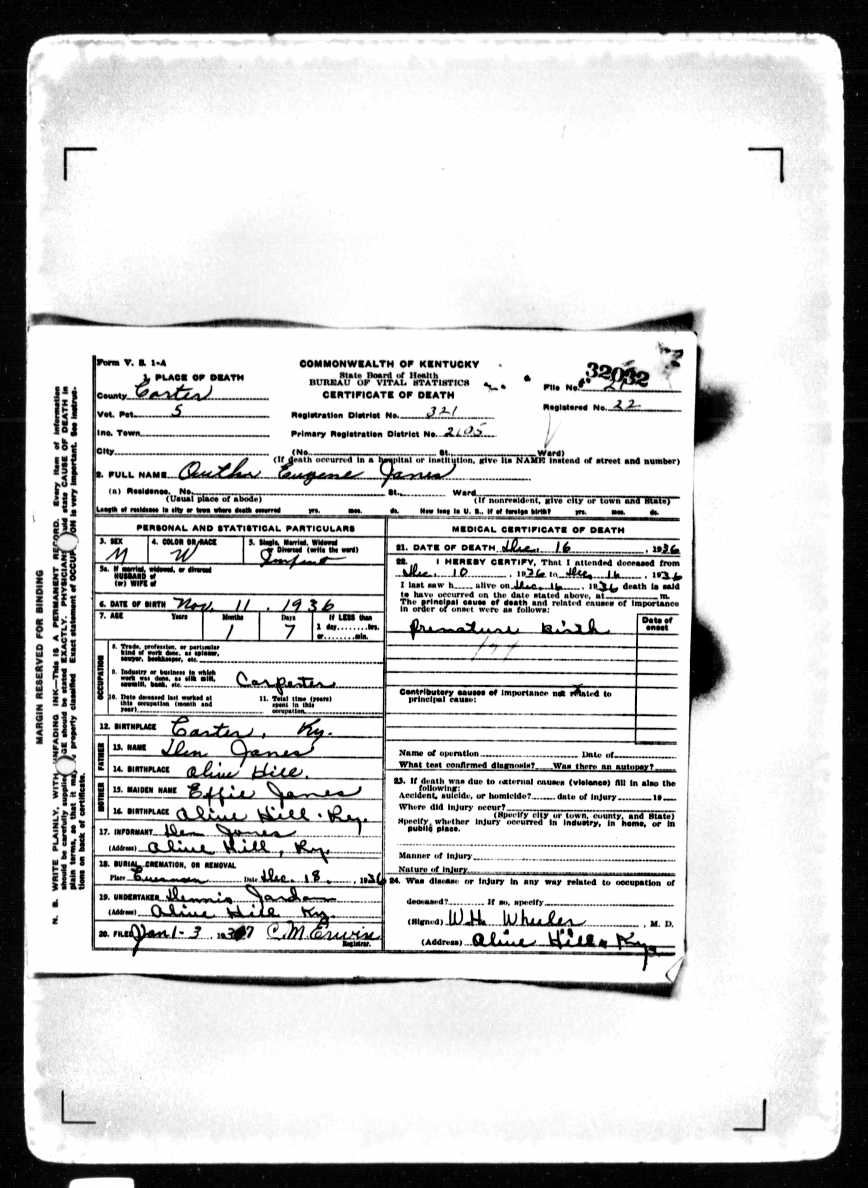 MARGIN RESERVED FOR BINDING
N. B. WRITE PLAINLY, WITH UNFADING INK—THIS IS A PERMANENT RECORD. Every item of information
should be carefully supplied. AGE should be stated EXACTLY. PHYSICIANS should state CAUSE OF DEATH in
plain terms, so that it may be properly classified. Exact statement of OCCUPATION is very important. See instruc-
tions on back of certificate.
Form V. S. 1-A
COMMONWEALTH OF KENTUCKY
State Board of Health
BUREAU OF VITAL STATISTICS
CERTIFICATE OF DEATH
32032
File No. 21
Registered No. 22
1. PLACE OF DEATH
County Carter
Vot. Pct. 5
Registration District No. 321
Inc. Town
Primary Registration District No. 2605
City (No. St. Ward)
(If death occurred in a hospital or institution, give its NAME instead of street and number)
2. FULL NAME Eugene Janes
(a) Residence. No. St., Ward
(Usual place of abode) (If nonresident, give city or town and State)
Length of residence in city or town where death occurred yrs. mos. ds. How long in U. S., if of foreign birth? yrs. mos. ds.
PERSONAL AND STATISTICAL PARTICULARS
3. SEX M
4. COLOR OR RACE W
5. Single, Married, Widowed
or Divorced (write the word)
Infant
5a. If married, widowed, or divorced
HUSBAND of
(or) WIFE of
6. DATE OF BIRTH Nov. 11, 1936
7. AGE Years Months Days If LESS than
1 7 1 day........hrs.
or........min.
OCCUPATION
8. Trade, profession, or particular
kind of work done, as spinner,
sawyer, bookkeeper, etc.
9. Industry or business in which
work was done, as silk mill,
sawmill, bank, etc. Carpenter
10. Date deceased last worked at
this occupation (month and
year)
11. Total time (years)
spent in this
occupation
12. BIRTHPLACE Carter, Ky.
FATHER
13. NAME Janes
14. BIRTHPLACE Olive Hill.
MOTHER
15. MAIDEN NAME Effie Janes
16. BIRTHPLACE Olive Hill. Ky.
17. INFORMANT Janes
(Address) Olive Hill, Ky.
18. BURIAL, CREMATION, OR REMOVAL
Place Date Dec. 18, 1936
19. UNDERTAKER Dennis Jordan
(Address) Olive Hill Ky.
20. FILED Jan 1-3, 1937 C. M. Erwin
Registrar.
MEDICAL CERTIFICATE OF DEATH
21. DATE OF DEATH Dec. 16, 1936
22. I HEREBY CERTIFY, That I attended deceased from
Dec. 10, 1936 to Dec. 16, 1936
I last saw h alive on Dec. 16, 1936 death is said
to have occurred on the date stated above, at m.
The principal cause of death and related causes of importance
in order of onset were as follows:
Date of
onset
Premature Birth
Contributory causes of importance not related to
principal cause:
Name of operation Date of
What test confirmed diagnosis? Was there an autopsy?
23. If death was due to external causes (violence) fill in also the
following:
Accident, suicide, or homicide? date of injury 19
Where did injury occur?
(Specify city or town, county, and State)
Specify whether injury occurred in industry, in home, or in
public place.
Manner of injury
Nature of injury
24. Was disease or injury in any way related to occupation of
deceased? If so, specify
(Signed) W. H. Wheeler, M. D.
(Address) Olive Hill Ky.